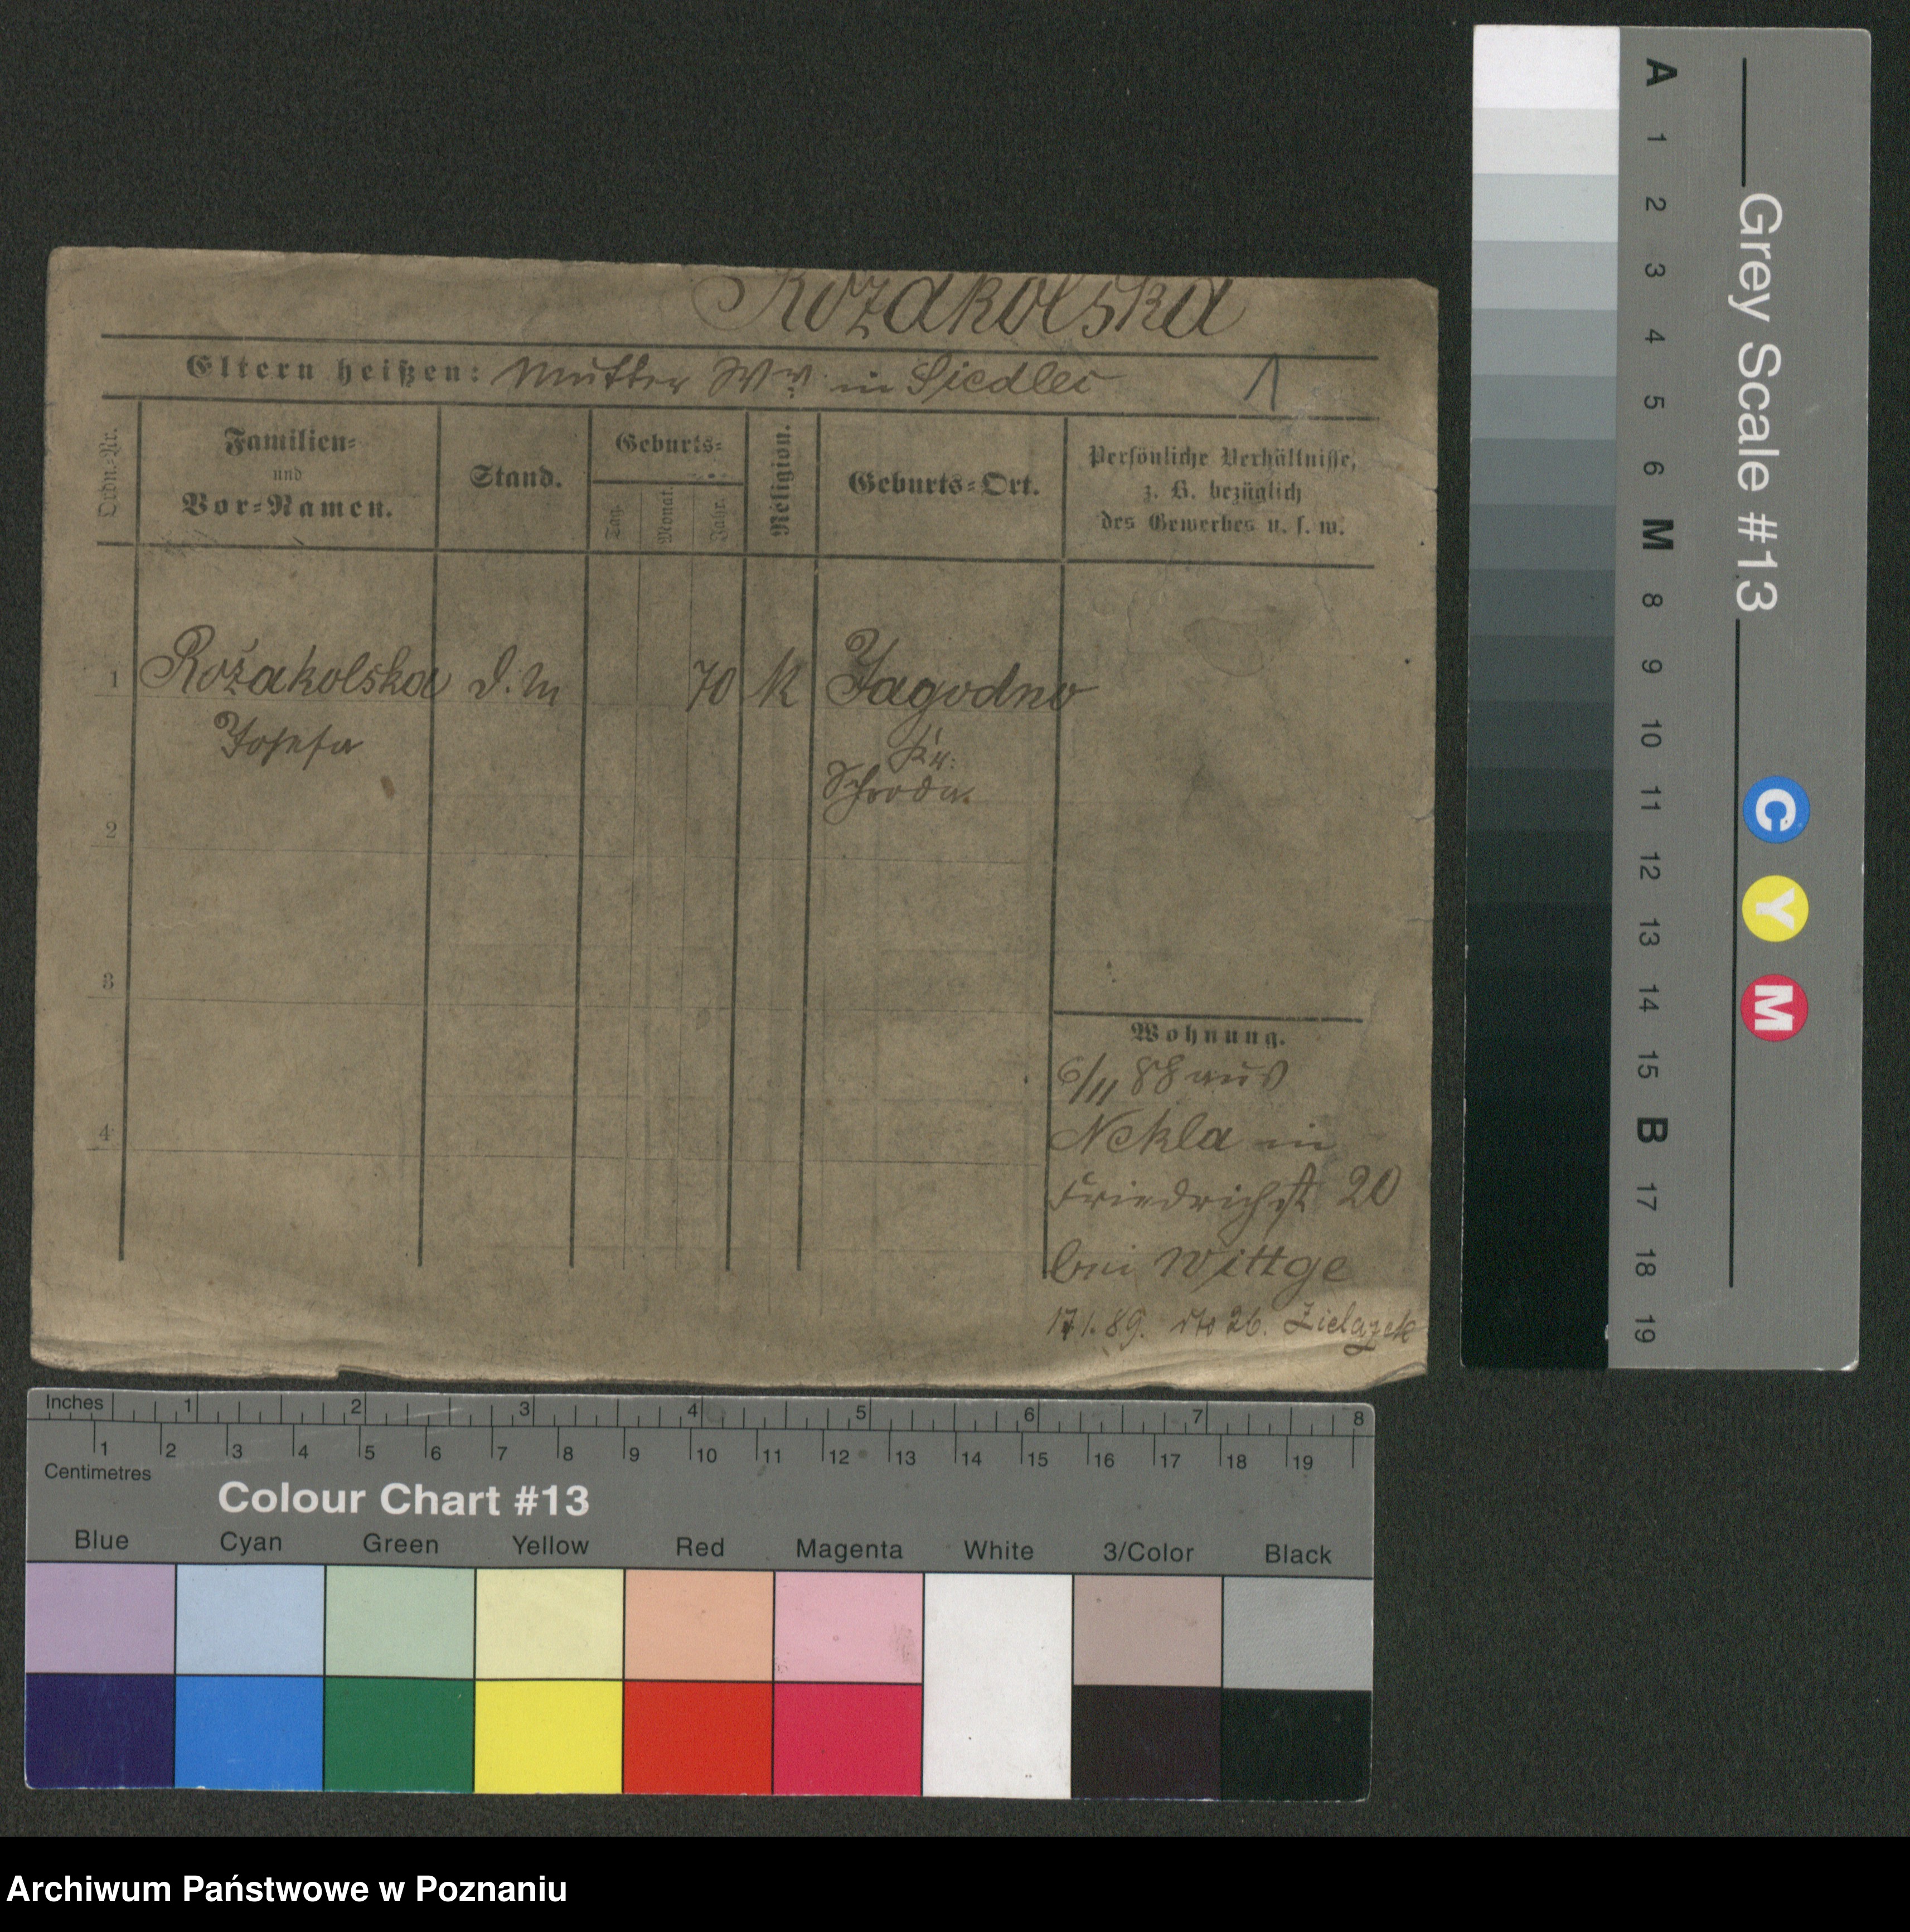 Rozakolska
Eltern heißen: Mutter Ww. in Siedlec
1
Ordn.=Nr.
Familien=
und
Vor=Namen.
Stand.
Geburts=
Tag.
Monat.
Jahr.
Religion.
Geburts=Ort.
Persönliche Verhältnisse,
z. B. bezüglich
des Gewerbes u. s. w.
1 Rożakolska d. M 70 k Jagodno
Josefa Kr:
Schroda.
2
3
4
Wohnung.
6/11 88 aus
Nekla in
Friedrichst 20
bei Wittge
17 1. 89. dto 26. Zielazek
A 1 2 3 4 5 6 M 8 9 10 11 12 13 14 15 B 17 18 19
Grey Scale #13
C Y M
Inches 1 2 3 4 5 6 7 8
1 2 3 4 5 6 7 8 9 10 11 12 13 14 15 16 17 18 19
Centimetres
Colour Chart #13
Blue Cyan Green Yellow Red Magenta White 3/Color Black
Archiwum Państwowe w Poznaniu